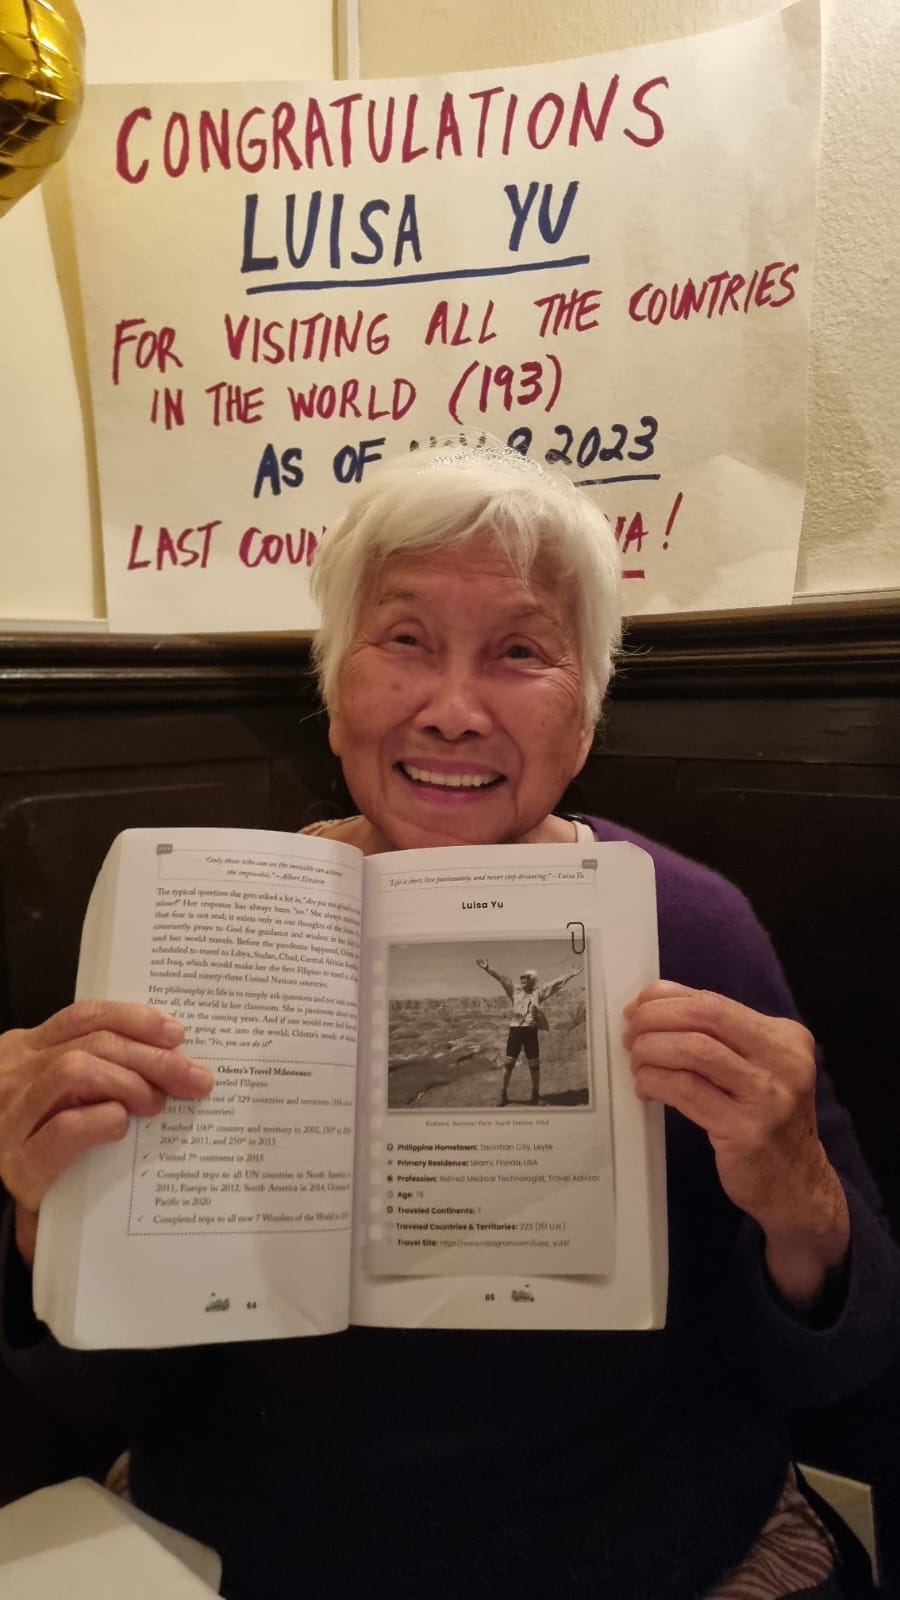 CONGRATULATIONS
LUISA YU
FOR VISITING ALL THE COUNTRIES
IN THE WORLD (193)
AS OF 2023
LAST
"Only those who can see the invisible can achieve
the impossible." – Albert Einstein
The typical question she gets asked a lot is, "Are you not afraid to
alone?" Her response has always been "no." She always
that fear is not real; it exists only in our thoughts of the
constantly prays to God for guidance and wisdom in her
and her world travels. Before the pandemic happened,
scheduled to travel to Libya, Sudan, Chad, Central African
and Iraq, which would make her the first Filipino to travel to
hundred and ninety-three United Nations countries.
Her philosophy in life is to simply ask questions and not
After all, the world is her classroom. She is passionate about
of it in the coming years. And if one would ever feel
going out into the world, Odette's words of
be: "Yes, you can do it!"
Odette's Travel Milestones:
Filipino
out of 329 countries and territories
193 U.N. countries)
✓ Reached 100th country and territory in 2002, 150th in
200th in 2011, and 250th in 2013
✓ Visited 7th continent in 2015
✓ Completed trips to all UN countries in North America
2011, Europe in 2012, South America in 2014,
Pacific in 2020
✓ Completed trips to all new 7 Wonders of the World in
64
"Life is short, live passionately, and never stop dreaming." – Luisa Yu
Luisa Yu
Badlands National Park, South Dakota, USA
Philippine Hometown: Tacloban City, Leyte
Primary Residence: Miami, Florida, USA
Profession: Retired Medical Technologist, Travel Advisor
Age:
Traveled Continents: 7
Traveled Countries & Territories: 223 (161 U.N.)
Travel Site:
65